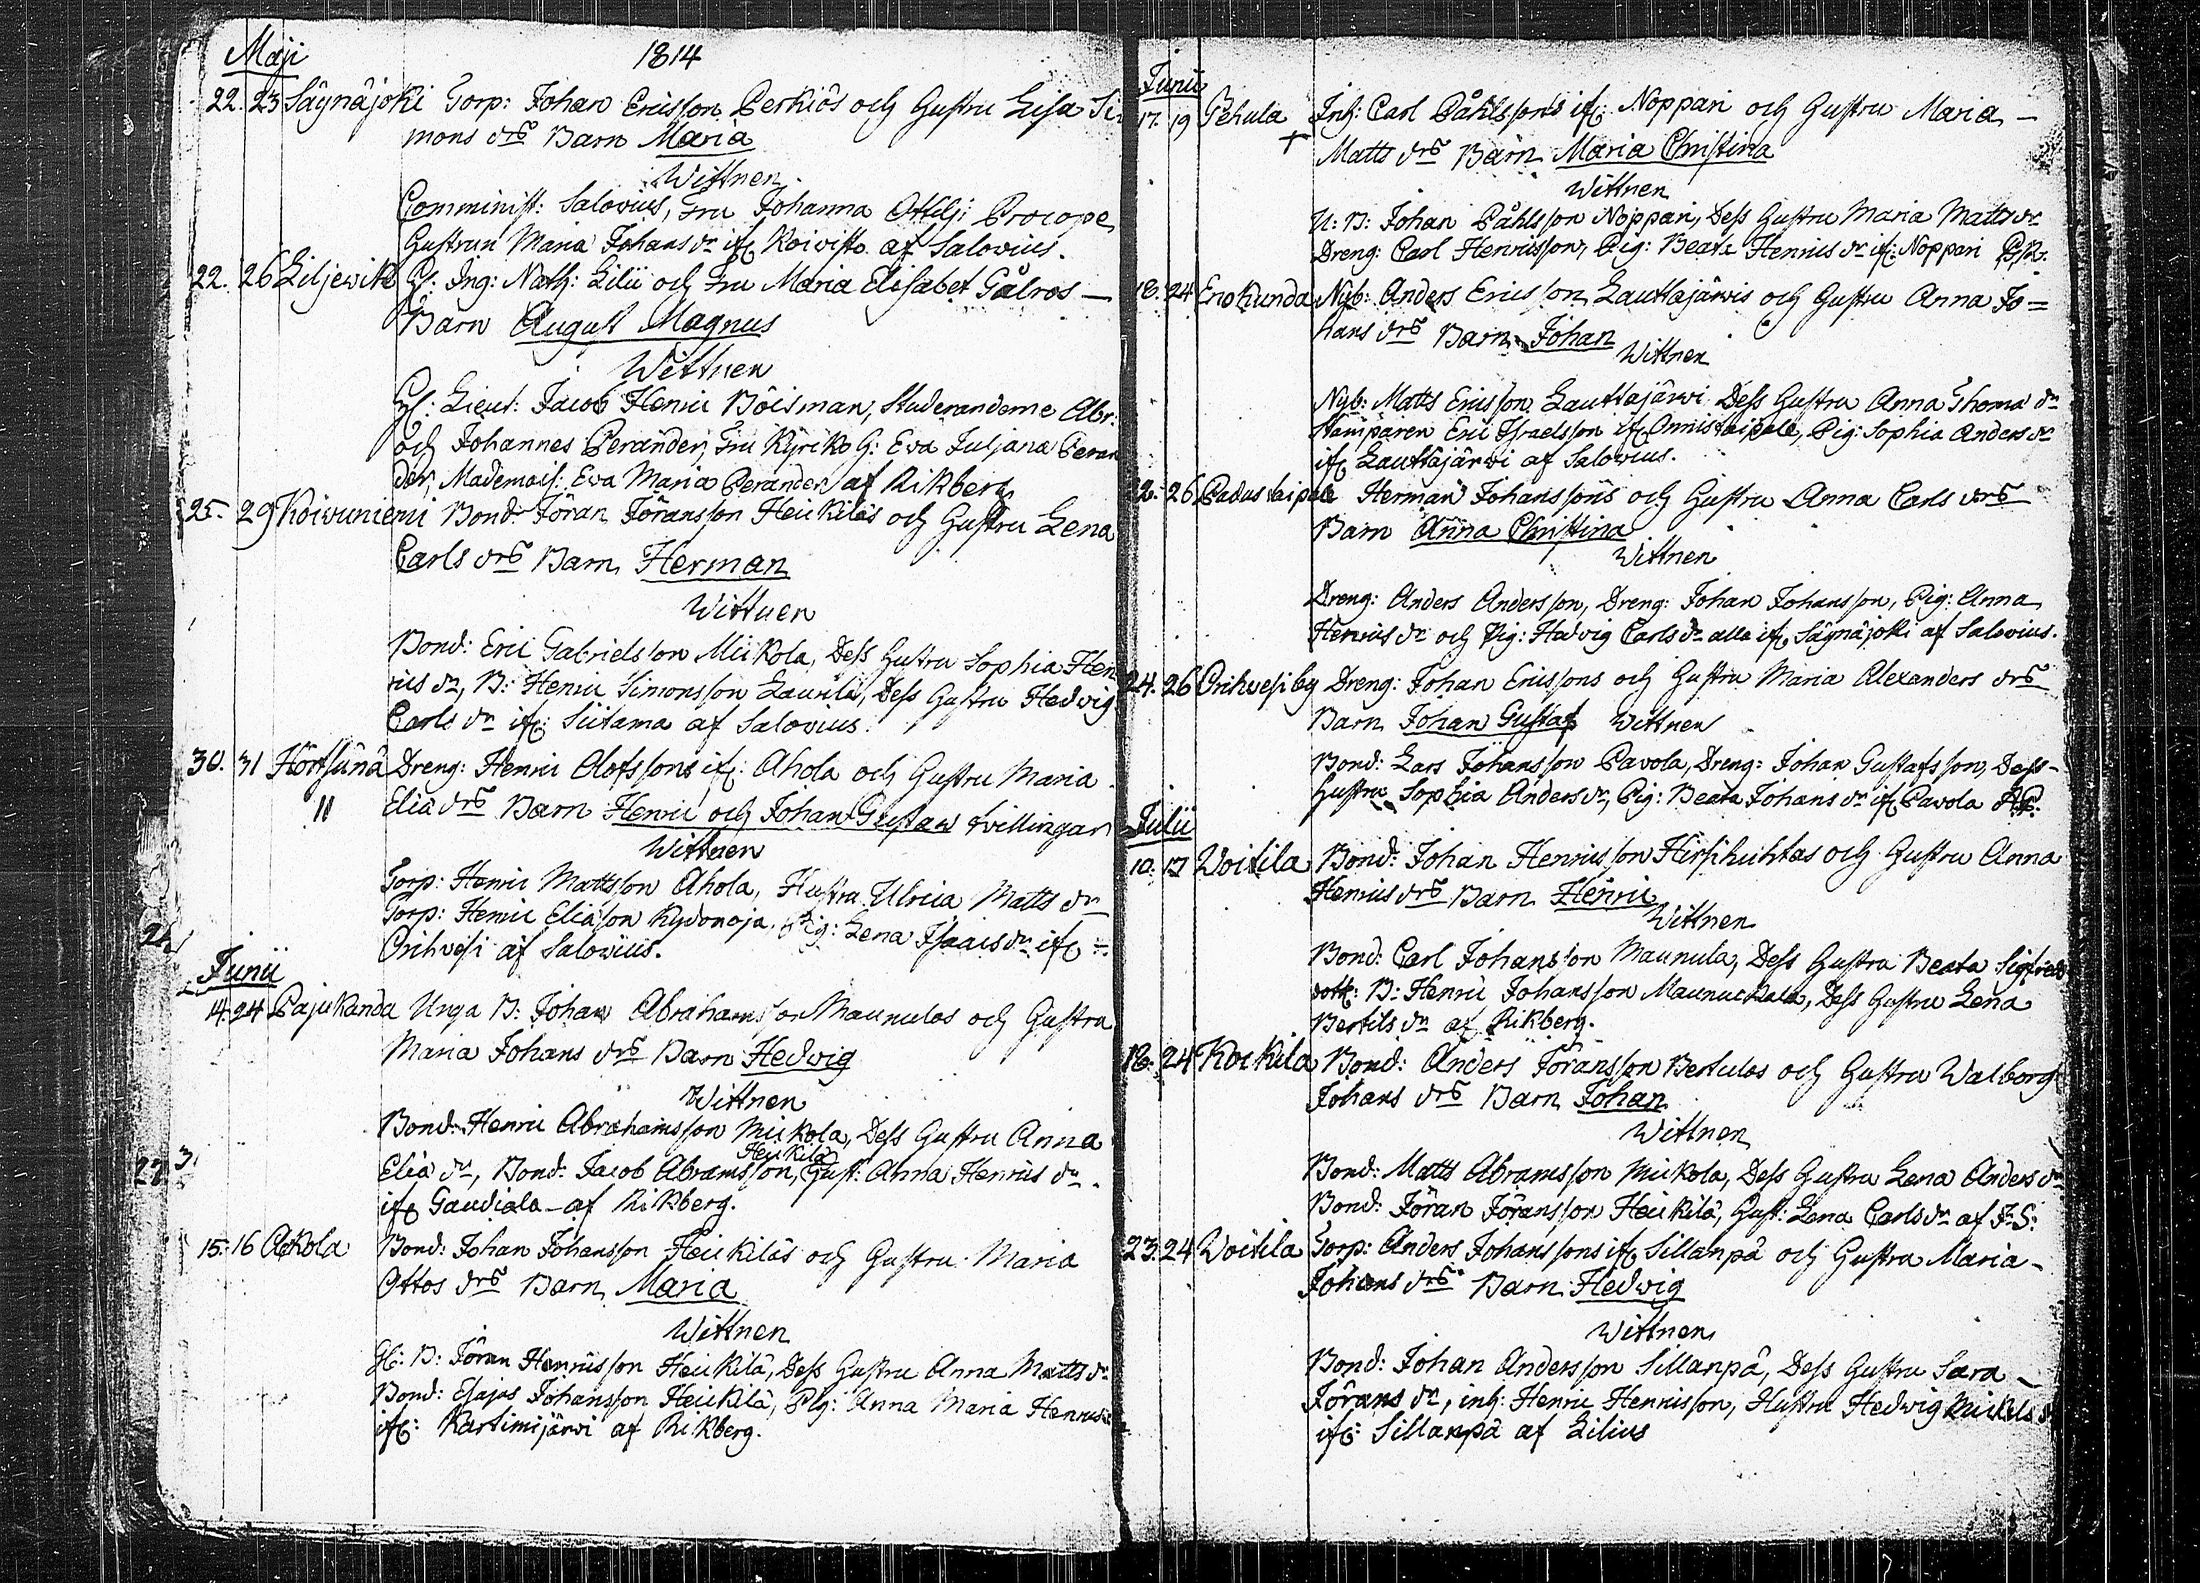 Maji
1814
22. 23 Säynäjoki Torp: Johan Ericsson Perkiös och Hustru Lisa Si
mons drs Barn Maria
Wittnen
Comminist: Salovius, Fru Johanna Ottilj: Procope,
Hustrun Maria Johans dr ifr Koivisto af Salovius.
22. 26 Liljewik H: Ing: Nath: Lilii och Fru Maria Elisabet Gålros —
Barn August Magnus
Wittnen
H: Lieut: Jacob Henric Böisman, Studerandeme Abr:
och Johannes Perander, Fru Kyrcko H: Eva Juljana Peran
der, Mademois: Eva Maria Perander af Rikberg
25. 29 Koivuniemi Bond: Jöran Jöransson Heickiläs och Hustru Lena
Carls drs Barn Herman
Wittnen
Bond: Eric Gabrielsson Mickola, Dess Hustru Sophia Hen
rics dr, B: Henric Simonsson Laurila, Dess Hustru Hedvig
Carls dr ifr: Siitama af Salovius.
30. 31 Hörtsänä Dreng: Henric Olofssons ifr: Ahola och Hustru Maria
" Elia drs Barn Henric och Johan Gustaw tvillingar
Wittnen
Torp: Henric Mattsson Ahola, Hustru Ulrica Matts dr
Torp: Henric Eliasson Kydonoja. Pig: Lena Isaacs dr ifr
Orihvesi af Salovius.
24
Junii
14. 24 Pajukanda Unga B: Johan Abrahamsson Maunulas och Hustru
Maria Johans drs Barn Hedvig
Wittnen
Bond: Henric Abrahamsson Mickola, Dess Hustru Anna
Heickilä
23 3.
Elia dr, Bond: Jacob Abramsson, Hust: Anna Henrics dr
ifr Gaudiala af Rikberg.
15. 16 Ackola Bond: Johan Johansson Heickiläs och Hustru Maria
Ottos drs Barn Maria
Wittnen
Gl: B: Jöran Henricsson Heickilä, Dess Hustru Anna Matts dr
Bond: Esajas Johansson Heickilä, Pig: Anna Maria Henrics dr
ifr: Kartimijärvi af Rikberg.
Junii
17. 19 Pehula Inh: Carl Påhlssons ifr: Noppari och Hustru Maria —
+ Matts drs Barn Maria Christina
Wittnen
U: B: Johan Påhlsson Noppari, Dess Hustru Maria Matts dr
Dreng: Carl Henricsson, Pig: Beata Henrics dr ifr: Noppari
18. 24 Erokunda Nyb: Anders Ericsson Lauttajärvis och Hustru Anna Jo=
hans drs Barn Johan
Wittnen
Nyb: Matts Ericsson Lauttajärvi Dess Hustru Anna Thoma dr
Nämparen Eric Israelsson ifr Onnistaipale, Pig: Sophia Anders dr
ifr Lauttajärvi af Salovius.
22. 26 Padustaipale Herman Johanssons och Hustru Anna Carls drs
Barn Anna Christina
Wittnen
Dreng: Anders Andersson, Dreng: Johan Johansson, Pig: Anna
Henrics dr och Pig: Hedvig Carls dr alla ifr Säynäjoki af Salovius.
24. 26 Orihvesi by Dreng: Johan Ericssons och Hustru Maria Alexanders drs
Barn Johan Gustaf Wittnen
Bond: Lars Johansson Pavola, Dreng: Johan Gustafsson, Dess
Hustru Sophia Anders dr, Pig: Beata Johans dr ifr Pavola
Julii
10. 17 Woitila Bond: Johan Henricsson Hirsihuhtas och Hustru Anna
Henrics drs Barn Henric
Wittnen
Bond: Carl Johansson Maunula, Dess Hustru Beata Sigfrids
dott: B: Henric Johansson Maunuckala, Dess Hustru Lena
Bertils dr af Rikberg.
18. 24 Kockila Bond: Anders Jöransson Bertulas och Hustru Walborg
Johans drs Barn Johan
Wittnen
Bond: Matts Abramsson Mickola, Dess Hustru Lena Anders dr
Bond: Jöran Jöransson Heickilä, Hust: Lena Carls dr af J. S:
23. 24 Woitila Torp: Anders Johanssons ifr Sillanpä och Hustru Maria —
Johans drs Barn Hedwig
Wittnen
Bond: Johan Andersson Sillanpä, Dess Hustru Sara —
Jörans dr, inh: Henric Henricsson, Hustru Hedwig Mickels dr
ifr: Sillanpä af Lilius